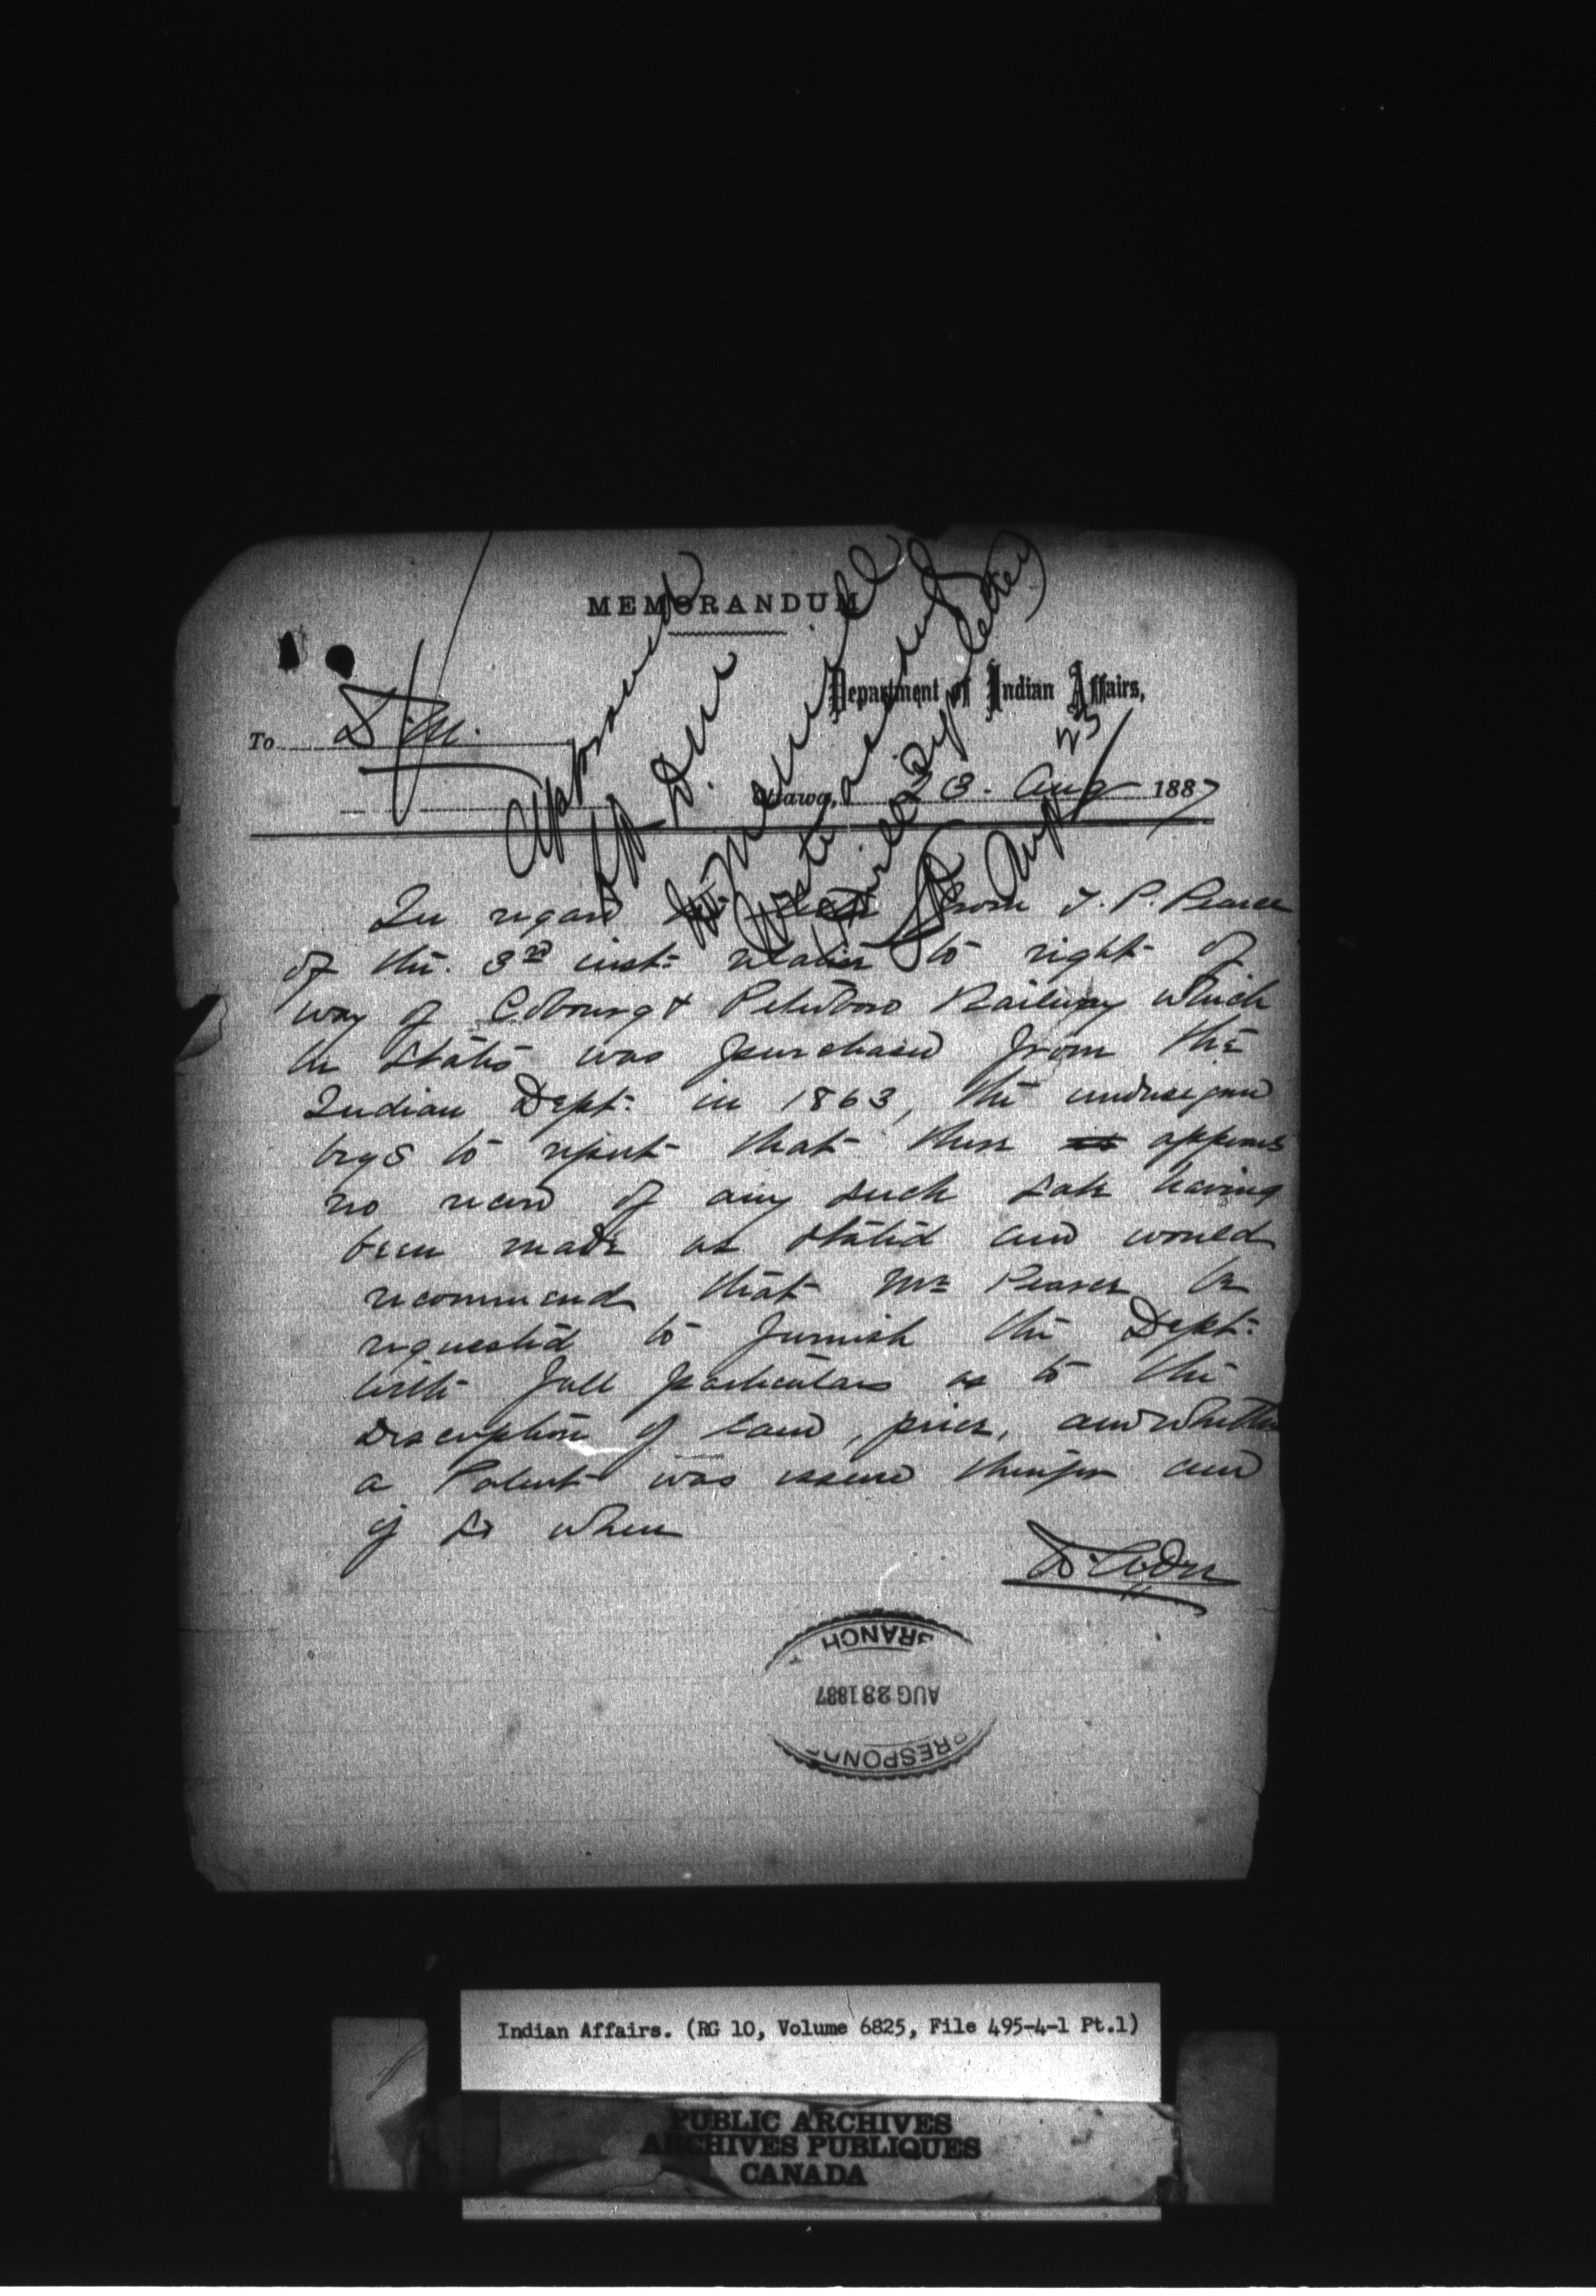 MEMORANDUM
Department of Indian Affairs,
To D.M.
Ottawa, 23. Aug 1887
Approved
Mr. Dew
Aug 23
In regard to letter from J. P. Pearce
of the. 3rd inst: relative to right of
way of Cobourg & Peterboro Railway which
he states was purchased from the
Indian Dept: in 1863, the undersigned
begs to report that there appears
no record of any such sale having
been made as stated and would
recommend that Mr Pearce be
requested to furnish the Dept:
with full particulars as to the
description of land, price, and whether
a Patent was issued therefor and
if so when
BRANCH
AUG 23 1887
RRESPOND
Indian Affairs. (RG 10, Volume 6825, File 495-4-1 Pt.1)
PUBLIC ARCHIVES
ARCHIVES PUBLIQUES
CANADA